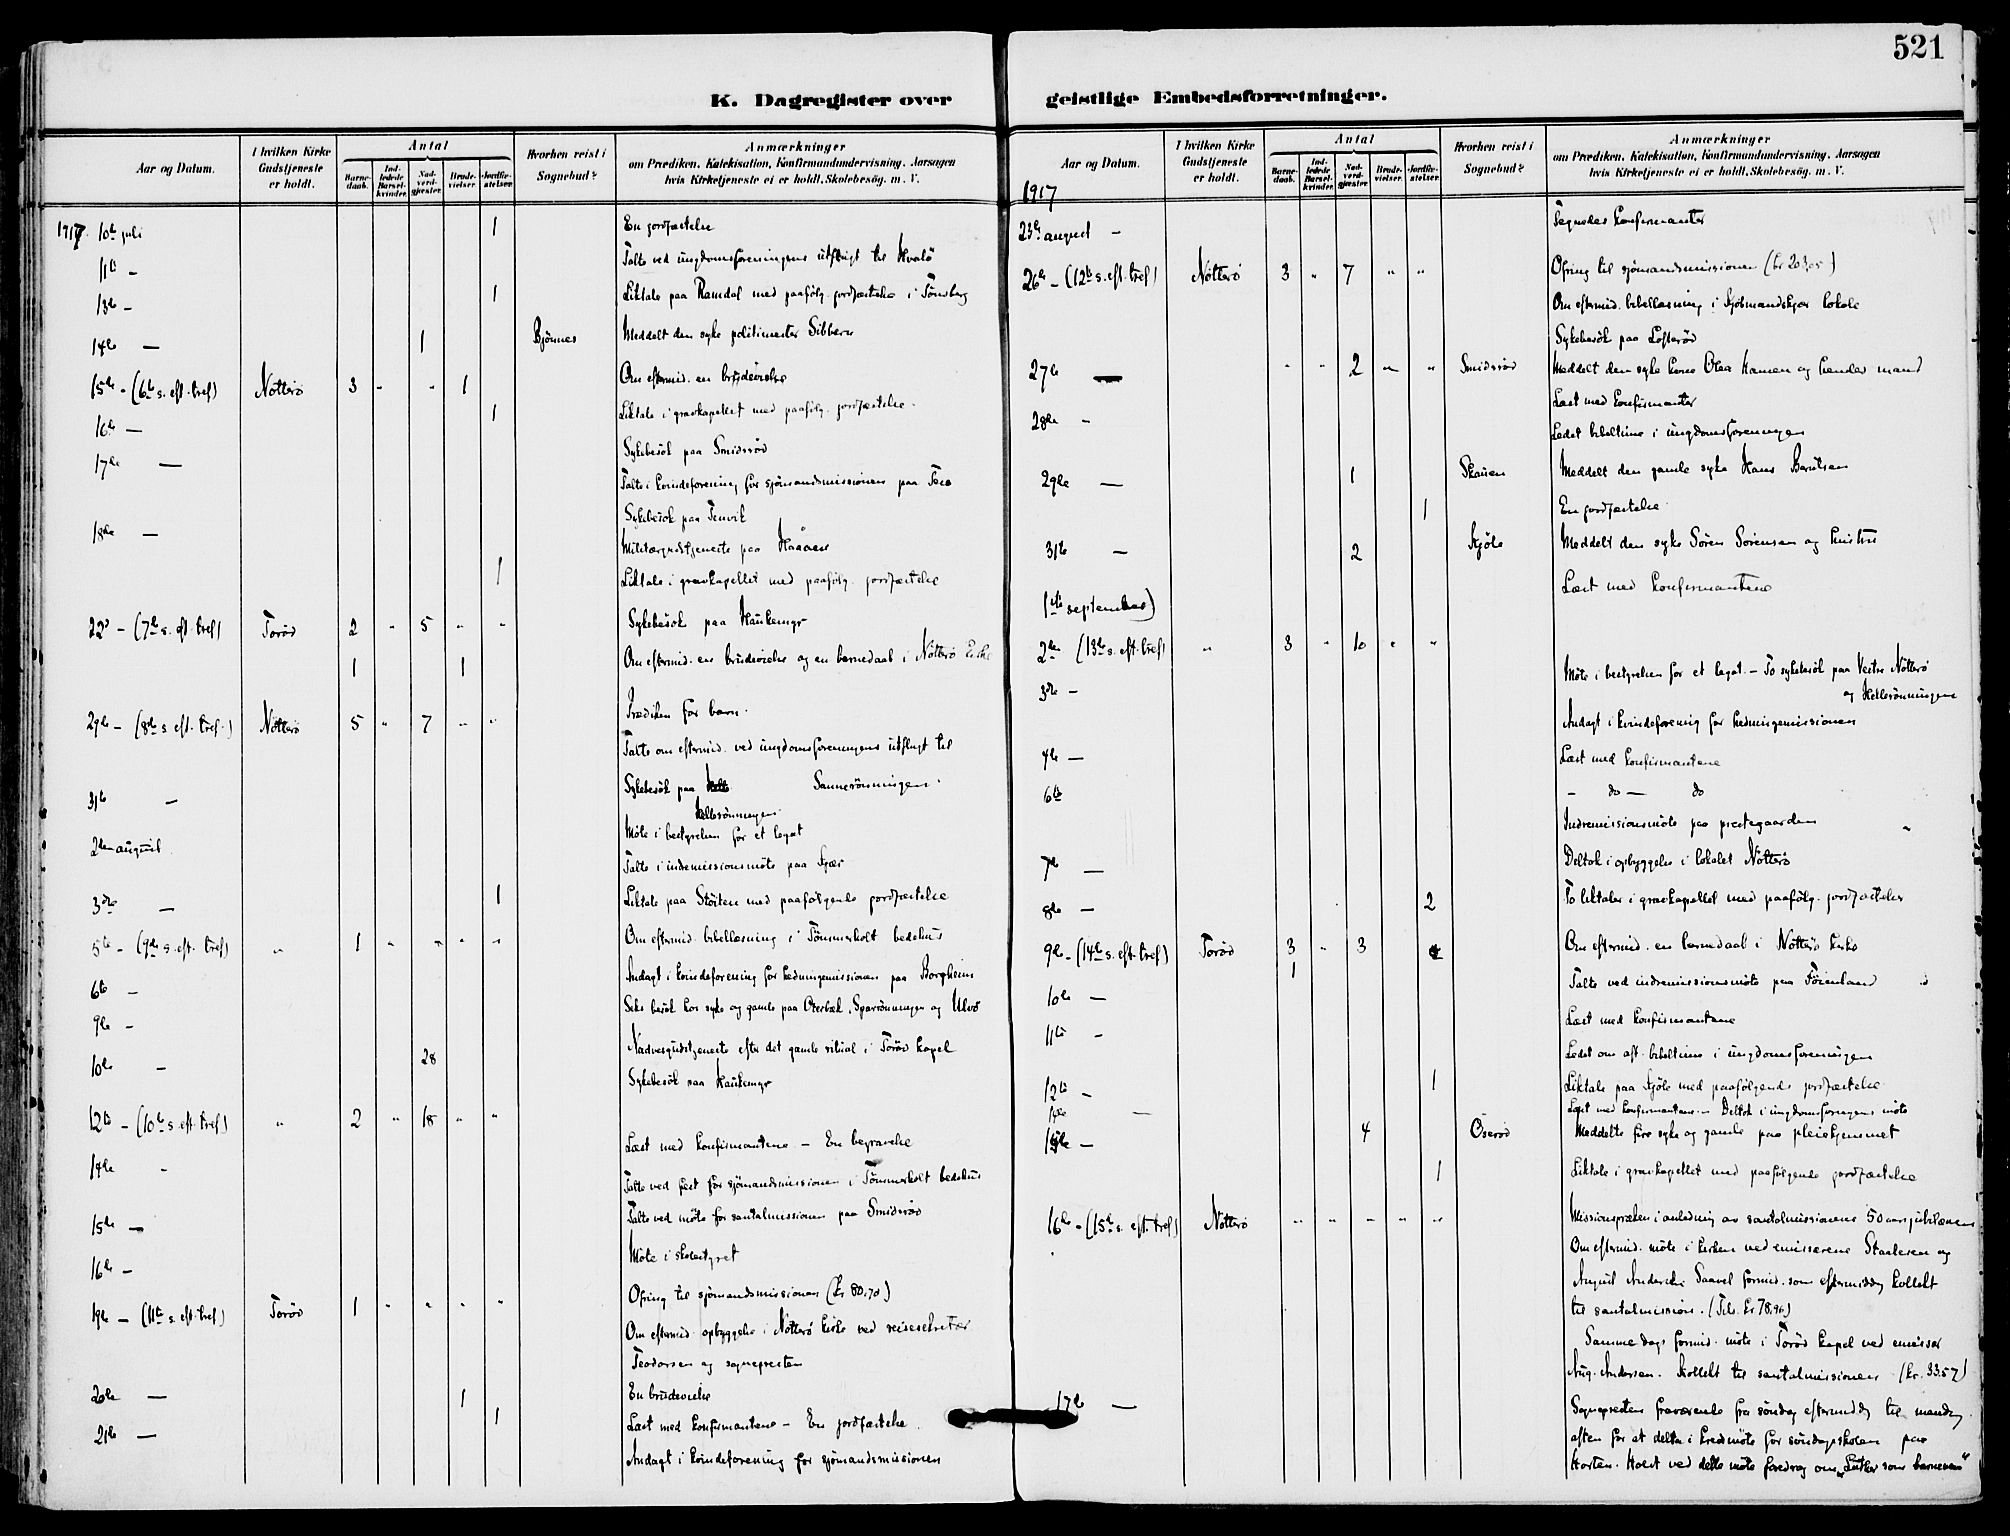 521
K. Dagregister over
geistlige Embedsforretninger.
Aar og Datum.
I hvilken Kirke Gudstjeneste er holdt.
Antal
Barnedaab.
Indledede Barselkvinder.
Nadverdgjæster.
Brudevielser.
Jordfæstelser.
Hvorhen reist i Sognebud?
Anmærkninger
om Prædiken, Katekisation, Konfirmandundervisning, Aarsagen
hvis Kirketjeneste ei er holdt, Skolebesøg, m. V.
1917. 10de juli 1 En jordfæstelse
11te - Talte ved ungdomsforeningens utflugt til Hvalö
13de - 1 Liktale paa Ramdal med paafölg. jordfæstelse i Tönsberg
14de — 1 Björnes Meddelt den syke politimester Sibbern
15de - (6te s. eft. tref) Nötterö 3 " " 1 Om eftermid. en brudevielse
16de — 1 Liktale i gravkapellet med paafölg. jordfæstelse
17de — Sykebesök paa Smidsröd
Talte i kvindeforening for sjömandsmissionen paa
Sykebesök paa Tenvik
18de — Militærgudstjeneste paa Haaöen
1 Liktale i gravkapellet med paafölg. jordfæstelse
22de - (7de s. eft. tref) Toröd 2 " 5 " " Sykebesök paa Haukemyr
1 1 Om eftermid. en brudevielse og en barnedaab i Nötterö kirke
Prædiken for barn.
29de - (8de s. eft. tref.) Nötterö 5 " 7 " "
Talte om eftermid. ved ungdomsforeningens utflugt til
Sannerönningen.
31te — Sykebesök paa Hellerönningen
2den august Möte i bestyrelsen for et legat
Talte i indremissionsmöte paa Kjær
3die — 1 Liktale paa Stöiten med paafölgende jordfæstelse
5te - (9de s. eft. tref) " 1 " " " " Om eftermid. bibellæsning i Tömmerholt bedehus
6te - Andagt i kvindeforening for hedningemissionen paa Borgheim
9de - Seks besök hos syke og gamle paa Oterbæk, Sparrönningen og Ulvö
10de - 28 Nadvergudstjeneste efter det gamle ritual i Toröd kapel
Sykebesök paa Haukemyr
12te - (10de s. eft. tref) " 2 " 18 " "
14de - Læst med konfirmantene — En begravelse
Talte ved fest for sjömandsmissionen i Tömmerholt bedehus
15de — Talte ved möte for santalmissionen paa Smidsröd
16de - Möte i skolestyret
19de - (11te s. eft. tref) Toröd 1 " " " " Ofring til sjömandsmissionen (kr 80,70)
Om eftermid. opbyggelse i Nötterö kirke ved reisesekretær
Teodorsen og sognepresten
20de — 1 En brudevielse
1 Læst med konfirmantene - En jordfæstelse
21de — Andagt i kvindeforening for sjömandsmissionen
Aar og Datum.
I hvilken Kirke Gudstjeneste er holdt.
Antal
Barnedaab.
Indledede Barselkvinder.
Nadverdgjæster.
Brudevielser.
Jordfæstelser.
Hvorhen reist i Sognebud?
Anmærkninger
om Prædiken, Katekisation, Konfirmandundervisning, Aarsagen
hvis Kirketjeneste ei er holdt, Skolebesøg, m. V.
1917
23de august - Tegnedes konfirmanter
26de - (12te s. eft. tref) Nötterö 3 " 7 " " Ofring til sjömandsmissionen
Om eftermid. bibellæsning i lokale
Sykebesök paa Lofteröd
27de — " " 2 " " Smidsröd Meddelt den syke kone Olea Hansen og hendes mand
Læst med konfirmanter
28de - Ledet bibeltime i ungdomsforeningen
29de — 1 Skauen Meddelt den gamle syke Hans
1 En jordfæstelse
31te — 2 Kjöle Meddelt den syke Sören Sörensen og hustru
Læst med konfirmantene
(1ste september)
2den (13de s. eft. tref) " 3 " 10 " "
3die - Möte i bestyrelsen for et legat. - To sykebesök paa Vestre Nötterö
og Hellerönningen
Andagt i kvindeforening for hedningemissionen
4de — Læst med konfirmantene
6te - do - do
Indremissionsmöte paa prestegaarden
7de — Deltok i opbyggelse i lokalet Nötterö
8de — 2 To liktaler i gravkapellet med paafölg. jordfæstelser
9de - (14de s. eft. tref) Toröd 3 " 3 Om eftermid. en barnedaab i Nötterö kirke
1
10de — Talte ved indremissionsmöte paa Föienland
11te - Læst med konfirmantene
Ledet om aft. bibeltime i ungdomsforeningen
12te - 1 Liktale paa Kjöle med paafölgende jordfæstelse
14de — Læst med konfirmantene. - Deltok i ungdomsforeningens möte
15de — 4 Öseröd Meddelte fire syke og gamle paa pleiehjemmet
1 Liktale i gravkapellet med paafölgende jordfæstelse
16de - (15de s. eft. tref) Nötterö " " " " " Missionspræken i anledning av santalmissionens 50 aars jubilæum
Om eftermid. möte i kirken ved emissærene Staalesen og
August Andersen. Saavel formid. som eftermiddag kollekt
til santalmission. (Tils. kr 78,96)
Samme dags formid. möte i Toröd kapel ved emissær
Aug. Andersen. Kollekt til santalmissionen (kr. 33.57)
17de — Sognepresten fraværende fra söndag eftermiddag til mandag
aften for at delta i kredsmöte for söndagsskolen paa
Horten. Holdt ved dette möte foredrag om „Luther som barneven"